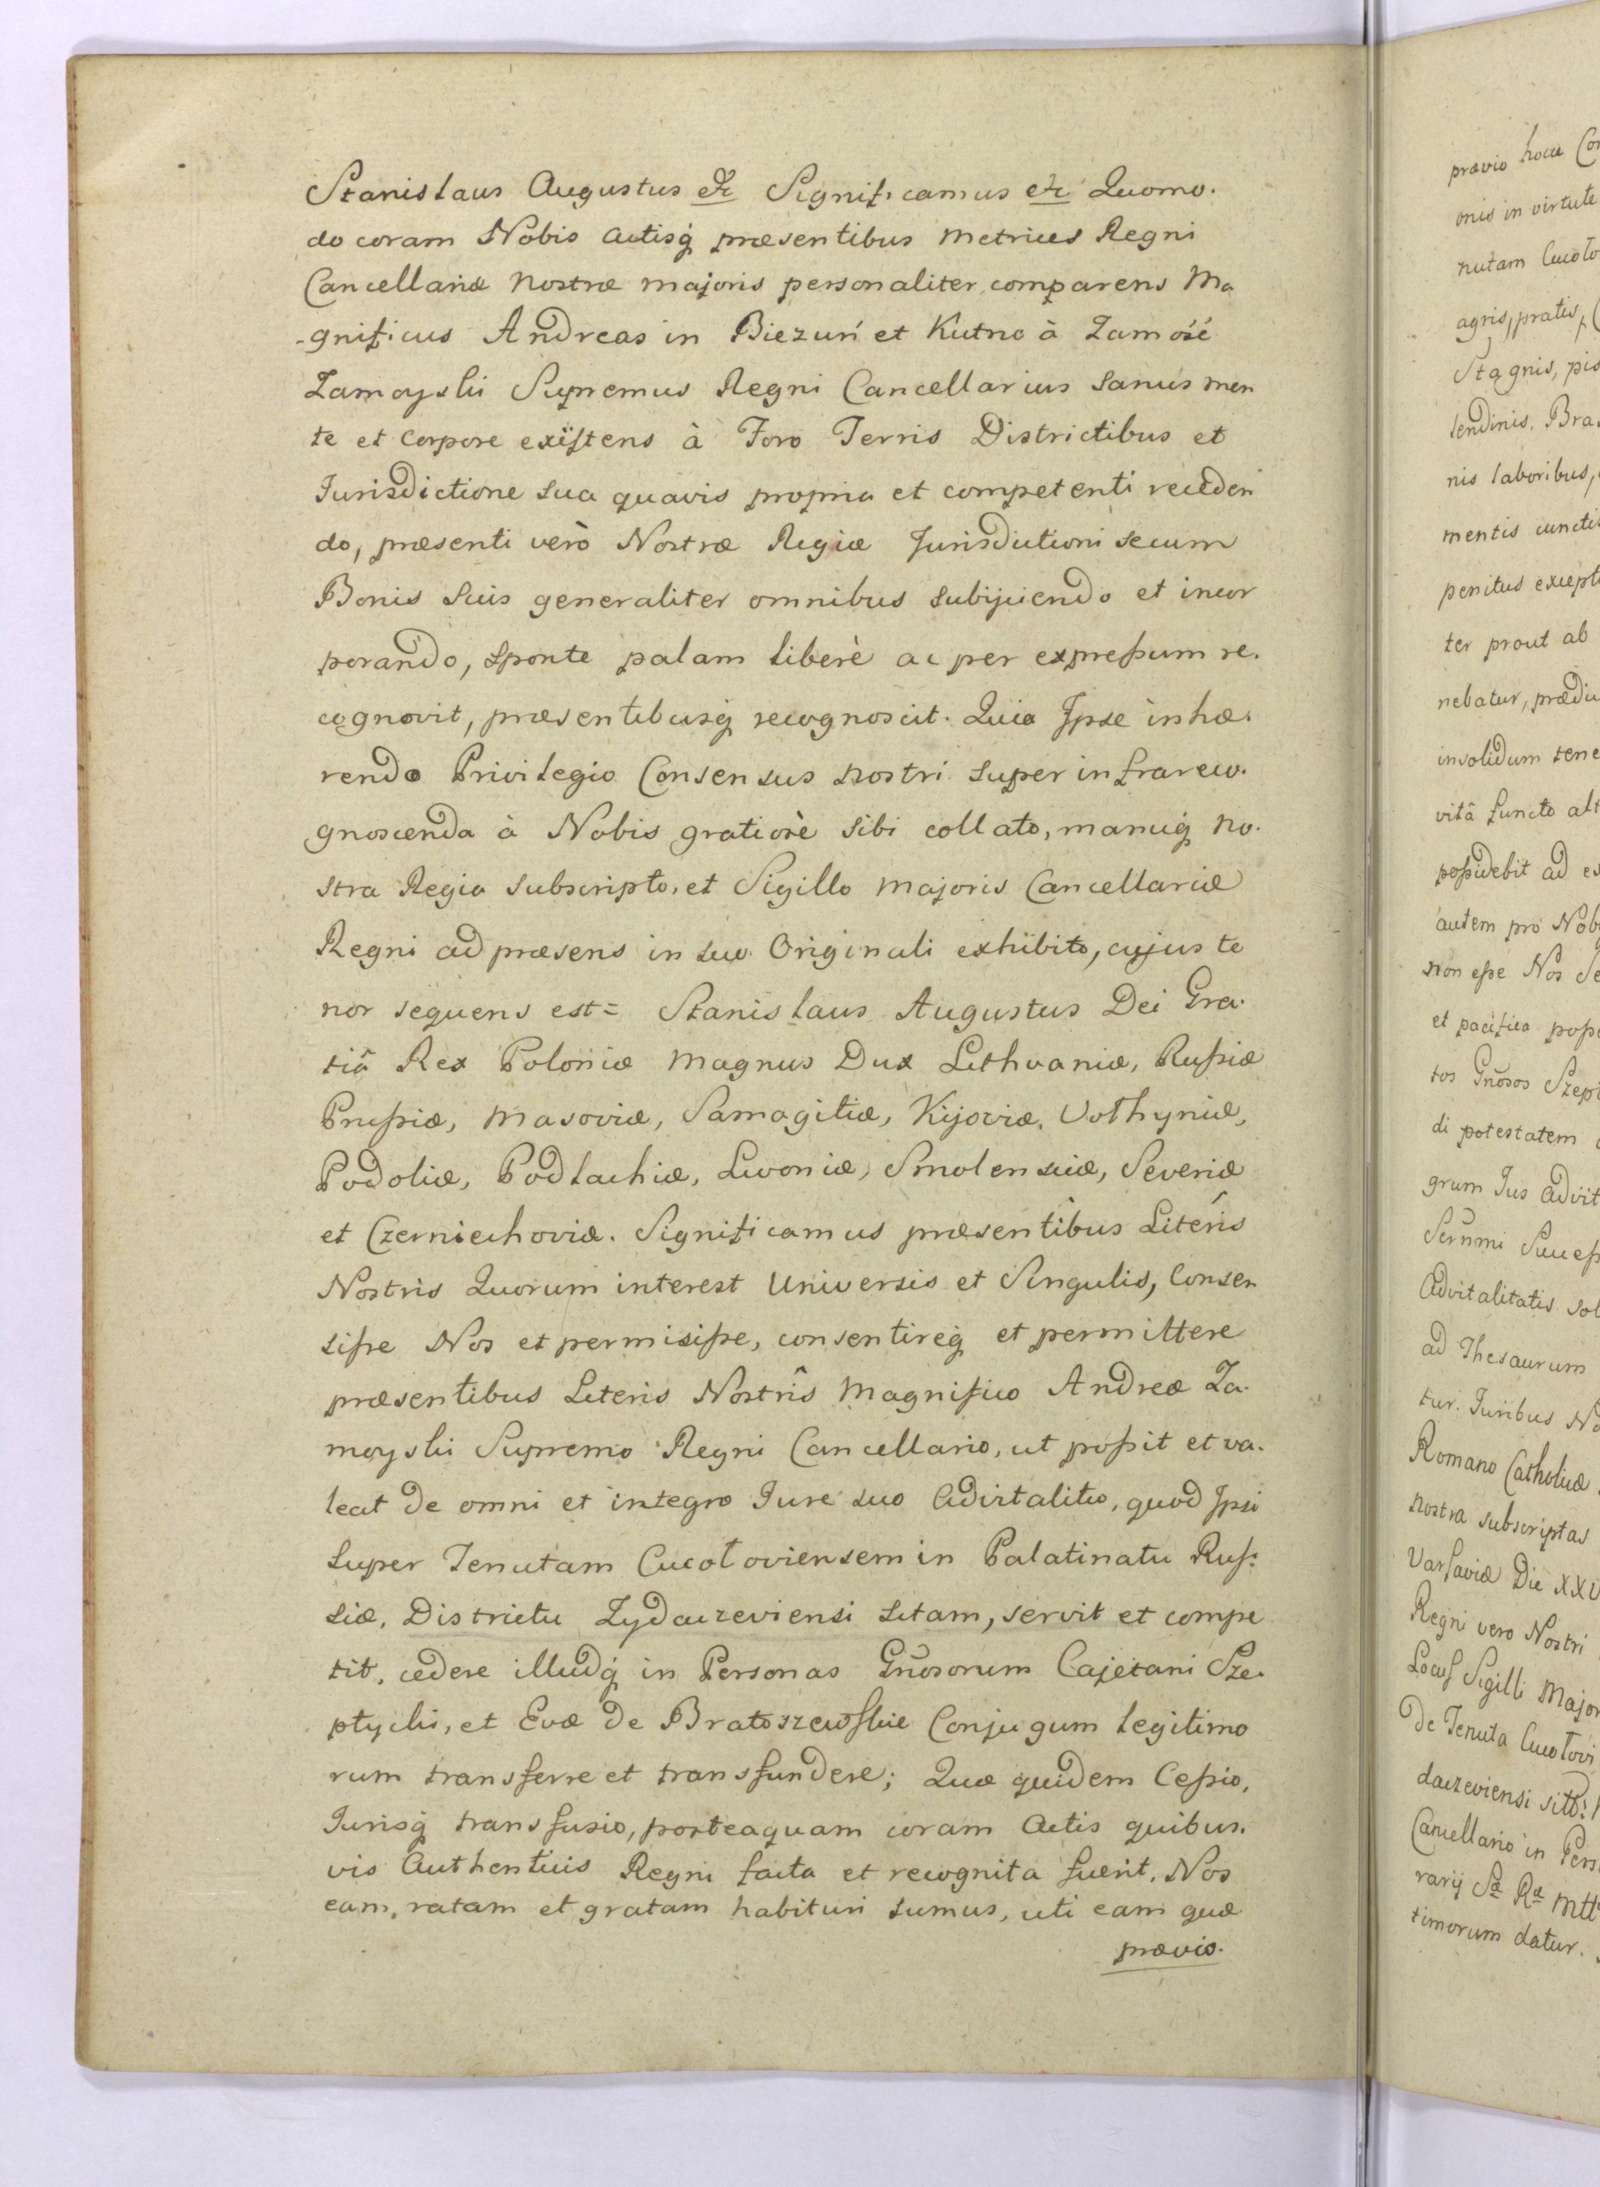 Stanislaus Augustus etc Significamus etc Quomo.
do coram Nobis Actisq́ præsentibus Metrices Regni
Cancellariæ Nostræ majoris personaliter comparens Ma
-gnificus Andreas in Biezuń et Kutno à Zamość
Zamoyski Supremus Regni Cancellarius sanus men
te et corpore exïstens à Foro Terris Districtibus et
Jurisdictione sua quavis propria et competenti receden
do, præsenti verò Nostræ Regiæ Jurisdictioni secum
Bonis suis generaliter omnibus subijciendo et incor
porando, sponte palam liberè ac per expreſsum re.
cognovit, præsentibusq́ recognoscit. Quia Ipse inhæ.
rendo Privilegio Consensus nostri super infrareco.
gnoscenda à Nobis gratiosè sibi collato, manuq́ no.
stra Regia subscripto, et Sigillo majoris Cancellariæ
Regni ad præsens in suo Originali exhibito, cujus te
nor sequens est = Stanislaus Augustus Dei Gra.
tiâ Rex Poloniæ Magnus Dux Lithvaniæ, Ruſsiæ
Pruſsiæ, Masoviæ, Samogitiæ, Kijoviæ, Volhyniæ,
Podoliæ, Podlachiæ, Livoniæ, Smolensciæ, Severiæ
et Czerniechoviæ. Significamus præsentibus Literis
Nostris Quorum interest Universis et Singulis, Consen
siſse Nos et permisiſse, consentireq́ et permittere
præsentibus Literis Nostris Magnifico Andreæ Za.
moyski Supremo Regni Cancellario, ut poſsit et va.
leat de omni et integro Jure suo Advitalitio, quod Ipsi
super Tenutam Cucołoviensem in Palatinatu Ruſ:
siæ, Districtu Zydaczeviensi sitam, servit et compe
tit, cedere illudq́ in Personas Gñosorum Cajetani Sze.
ptycki, et Evæ de Bratoszewskie Conjugum legitimo
rum transferre et transfundere; Quæ quidem Ceſsio,
Jurisq́ transfusio, posteaquam coram Actis quibus.
vis Authenticis Regni facta et recognita fuerit, Nos
eam, ratam et gratam habituri sumus, uti eam quæ
prævio.
prævio hocce Con
onis in virtute
nutam Cucoło
agris, pratis,
Stagnis, pis
lendinis, Bra
nis laboribus,
mentis cuncti
penitus except
ter prout ab
nebatur, prædi
insolidum tene
vitâ functo alt
poſsidebit ad
autem pro Nob
non eſse Nos Se
et pacifica poſs
tos Gñosos Szep
di potestatem
grum Jus Advit
Serñmi Succeſs
Advitalitatis sol
ad Thesaurum
tur. Juribus No
Romano Catholicæ
nostra subscriptas
Varsaviæ Die XXV
Regni vero Nostri
Locus Sigilli Major
De Tenuta Cucołovi
daczeviensi sito:
Cancellario in Pers
rarij Sæ Ræ Mtt
timorum datur.